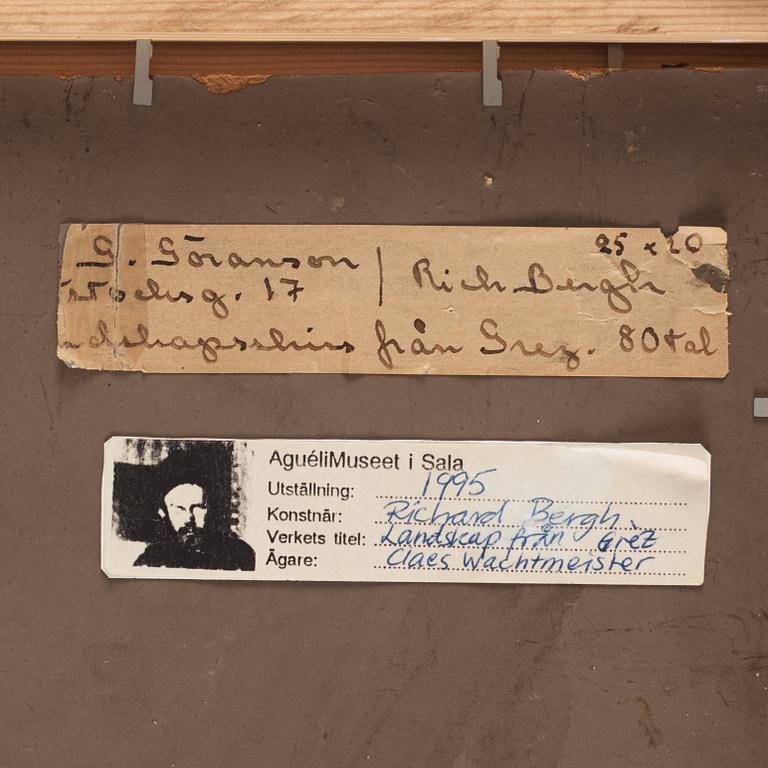 G. Göranson | Rich Bergh 25 x 20
17
från Grez. 80tal
AguéliMuseet i Sala
Utställning: 1995
Konstnär: Richard Bergh
Verkets titel: Landskap från Grèz
Ägare: Claes Wachtmeister